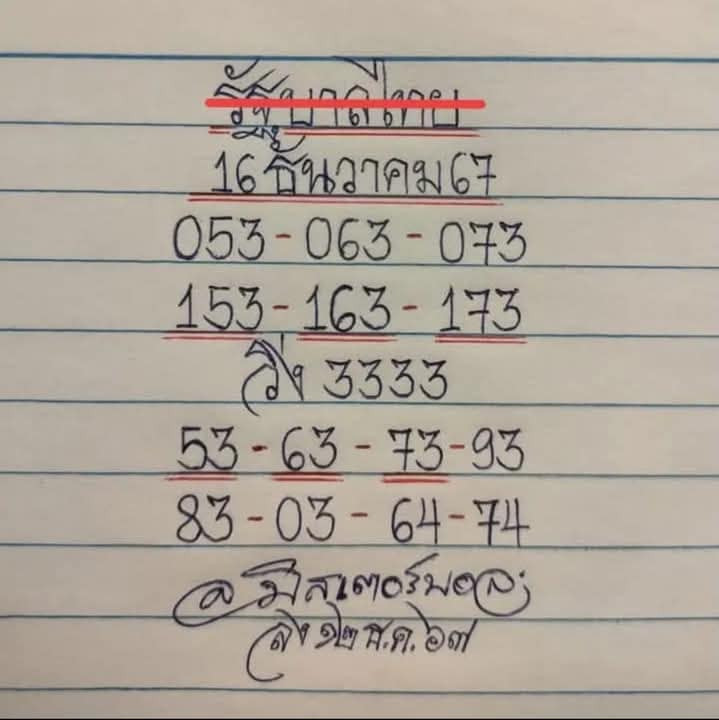 รัฐบาลไทย
16 ธันวาคม 67
053 - 063 - 073
153 - 163 - 173
วิ่ง 3333
53 - 63 - 73 - 93
83 - 03 - 64 - 74
@ มิสเตอร์บอล
๑๒ ธ.ค. ๖๗